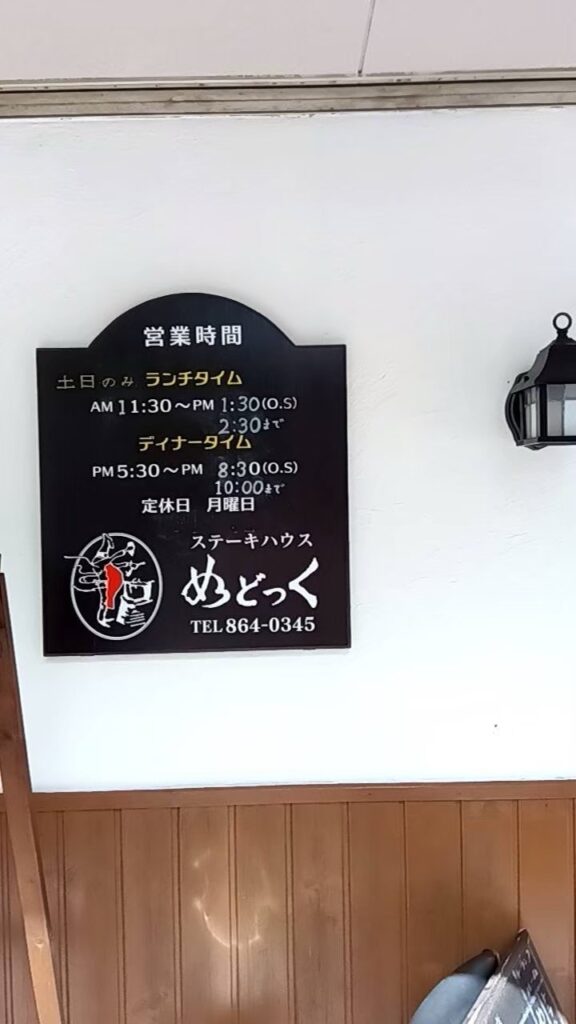 営業時間
土日のみ ランチタイム
AM 11:30～PM 1:30(O.S)
2:30まで
ディナータイム
PM 5:30～PM 8:30(O.S)
10:00まで
定休日 月曜日
ステーキハウス
めどっく
TEL 864-0345